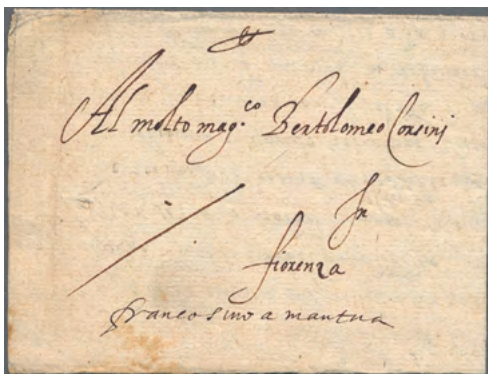 Al molto mag.co Bertolomeo Corsini
In
fiorenza
franco sino a mantua